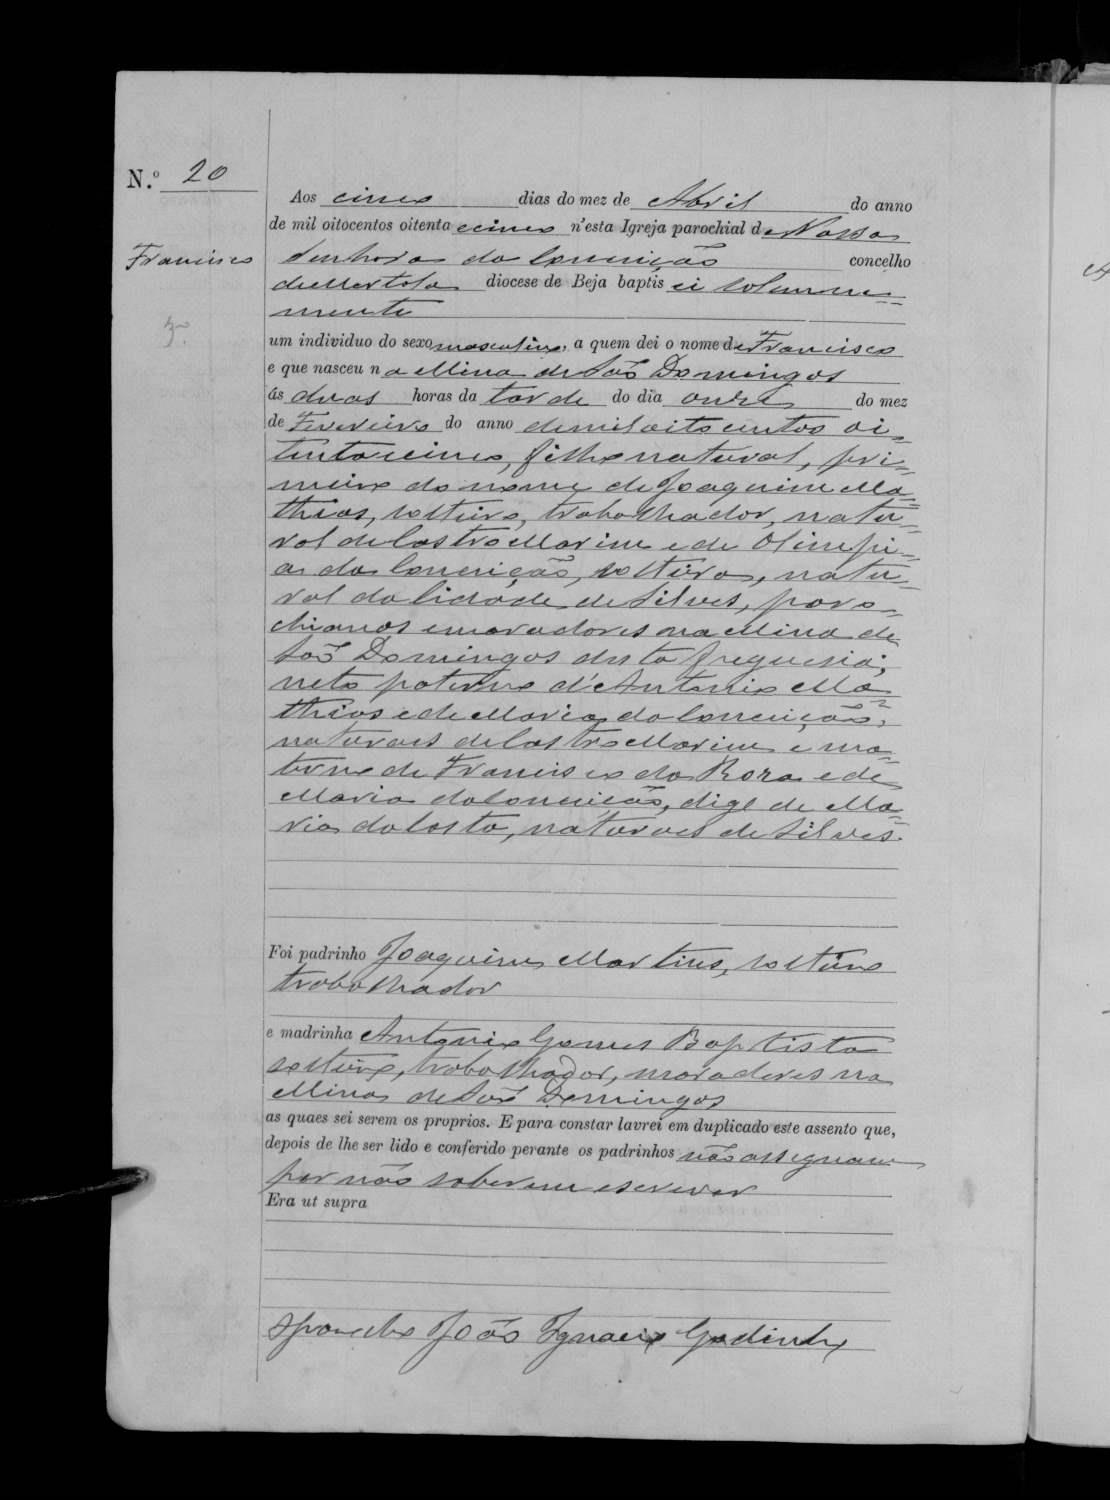 N.º 20
Aos cinco dias do mez de Abril do anno
de mil oitocentos oitenta ecinco n'esta Igreja parochial de Nossa
Francisco
Senhora da Conceição concelho
de Mertola diocese de Beja baptisei solemne=
mente
um individuo do sexo masculino, a quem dei o nome de Francisco
e que nasceu na Mina de São Domingos
ás duas horas da tarde do dia onze do mez
de Fevereiro do anno de mil oito centos oi=
tenta ecinco, filho natural, pri=
meiro do nome de Joaquim Ma=
thias, solteiro, trabalhador, natu=
ral de Castro Marim e de Olimpi=
a da Conceição, solteira, natu=
ral da Cidade de Silves, paro=
chianos emoradores na Mina de
São Domingos desta freguesia;
neto paterno d'Antonio Ma=
thias e de Maria da Conceição,
naturaes de Castro Marim e ma=
terno de Francisco da Roza e de
Maria da Conceição, digo de Ma=
ria da Costa, naturaes de Silves.
Foi padrinho Joaquim Martins, solteiro
trabalhador
e madrinha Antonio Gomes Baptista
solteiro, trabalhador, moradores na
Mina de São Domingos
as quaes sei serem os proprios. E para constar lavrei em duplicado este assento que,
depois de lhe ser lido e conferido perante os padrinhos não assignam
por não saberem escrever
Era ut supra
João Ignacio Godinho